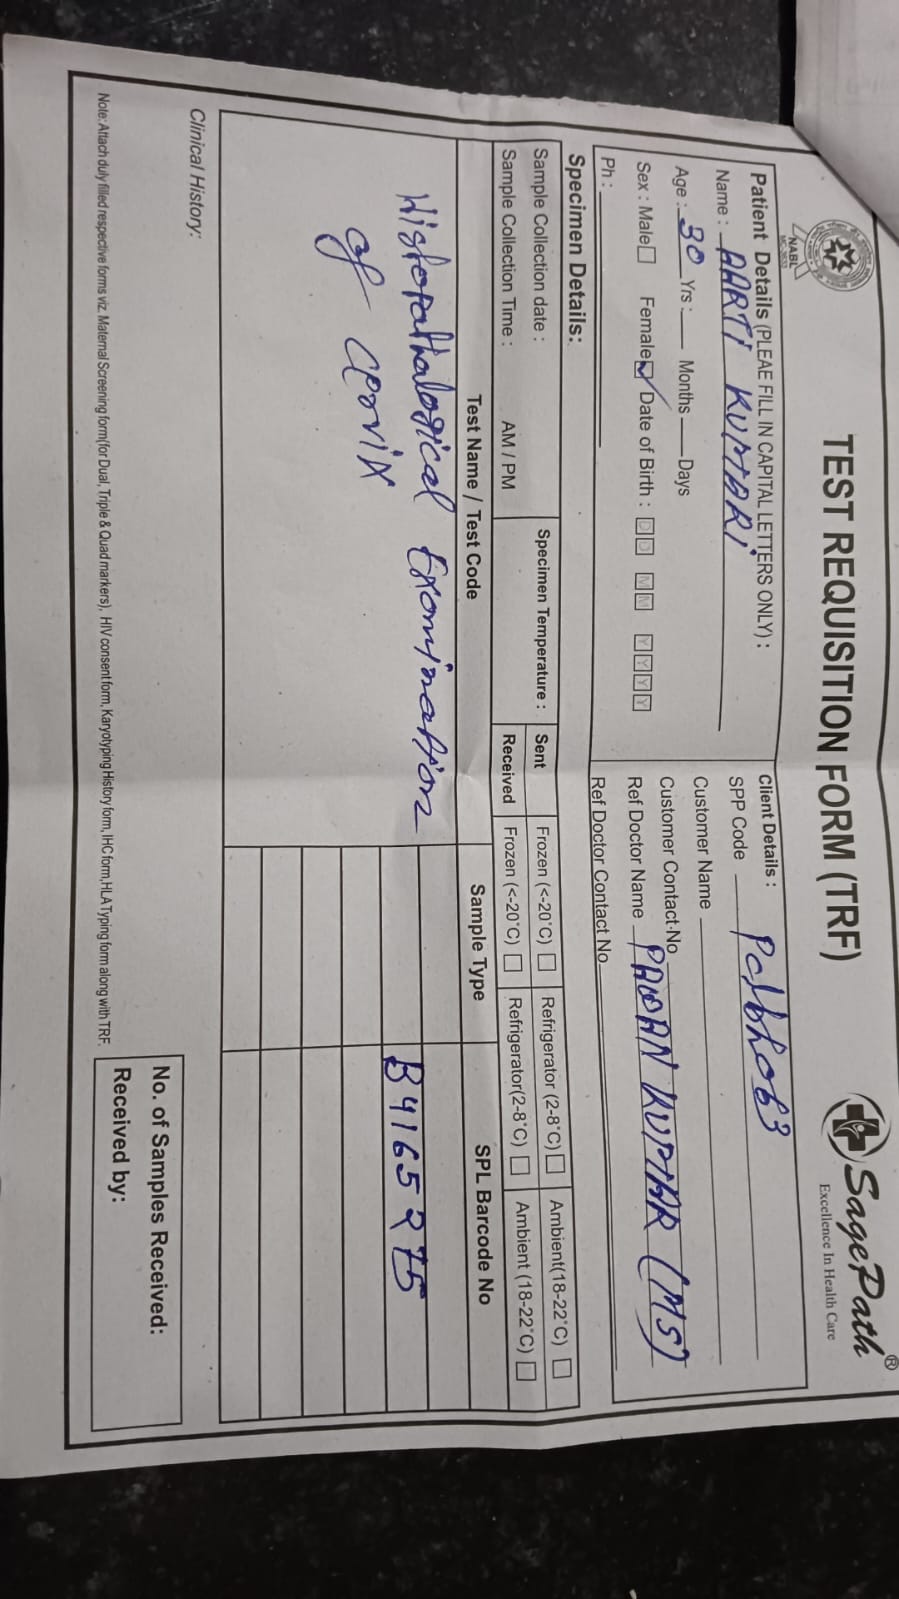 NABL
TEST REQUISITION FORM (TRF)
SagePath®
Excellence In Health Care
Patient Details (PLEAE FILL IN CAPITAL LETTERS ONLY) :
Name : AARTI KUMARI
Age : 30 Yrs : Months Days
Sex : Male Female Date of Birth : DD MM YYYY
Ph :
Client Details :
SPP Code
Customer Name
Customer Contact No
Ref Doctor Name PAWAN KUMAR (MS)
Ref Doctor Contact No
Specimen Details:
Sample Collection date :
Sample Collection Time : AM / PM
Specimen Temperature :
Sent Frozen (<-20°C) Refrigerator (2-8°C) Ambient(18-22°C)
Received Frozen (<-20°C) Refrigerator(2-8°C) Ambient (18-22°C)
Test Name / Test Code Sample Type SPL Barcode No
Histopathological Examination
of cervix
B4165275
Clinical History:
No. of Samples Received:
Received by:
Note: Attach duly filled respective forms viz. Maternal Screening form(for Dual, Triple & Quad markers), HIV consent form, Karyotyping History form, IHC form,HLA Typing form along with TRF.